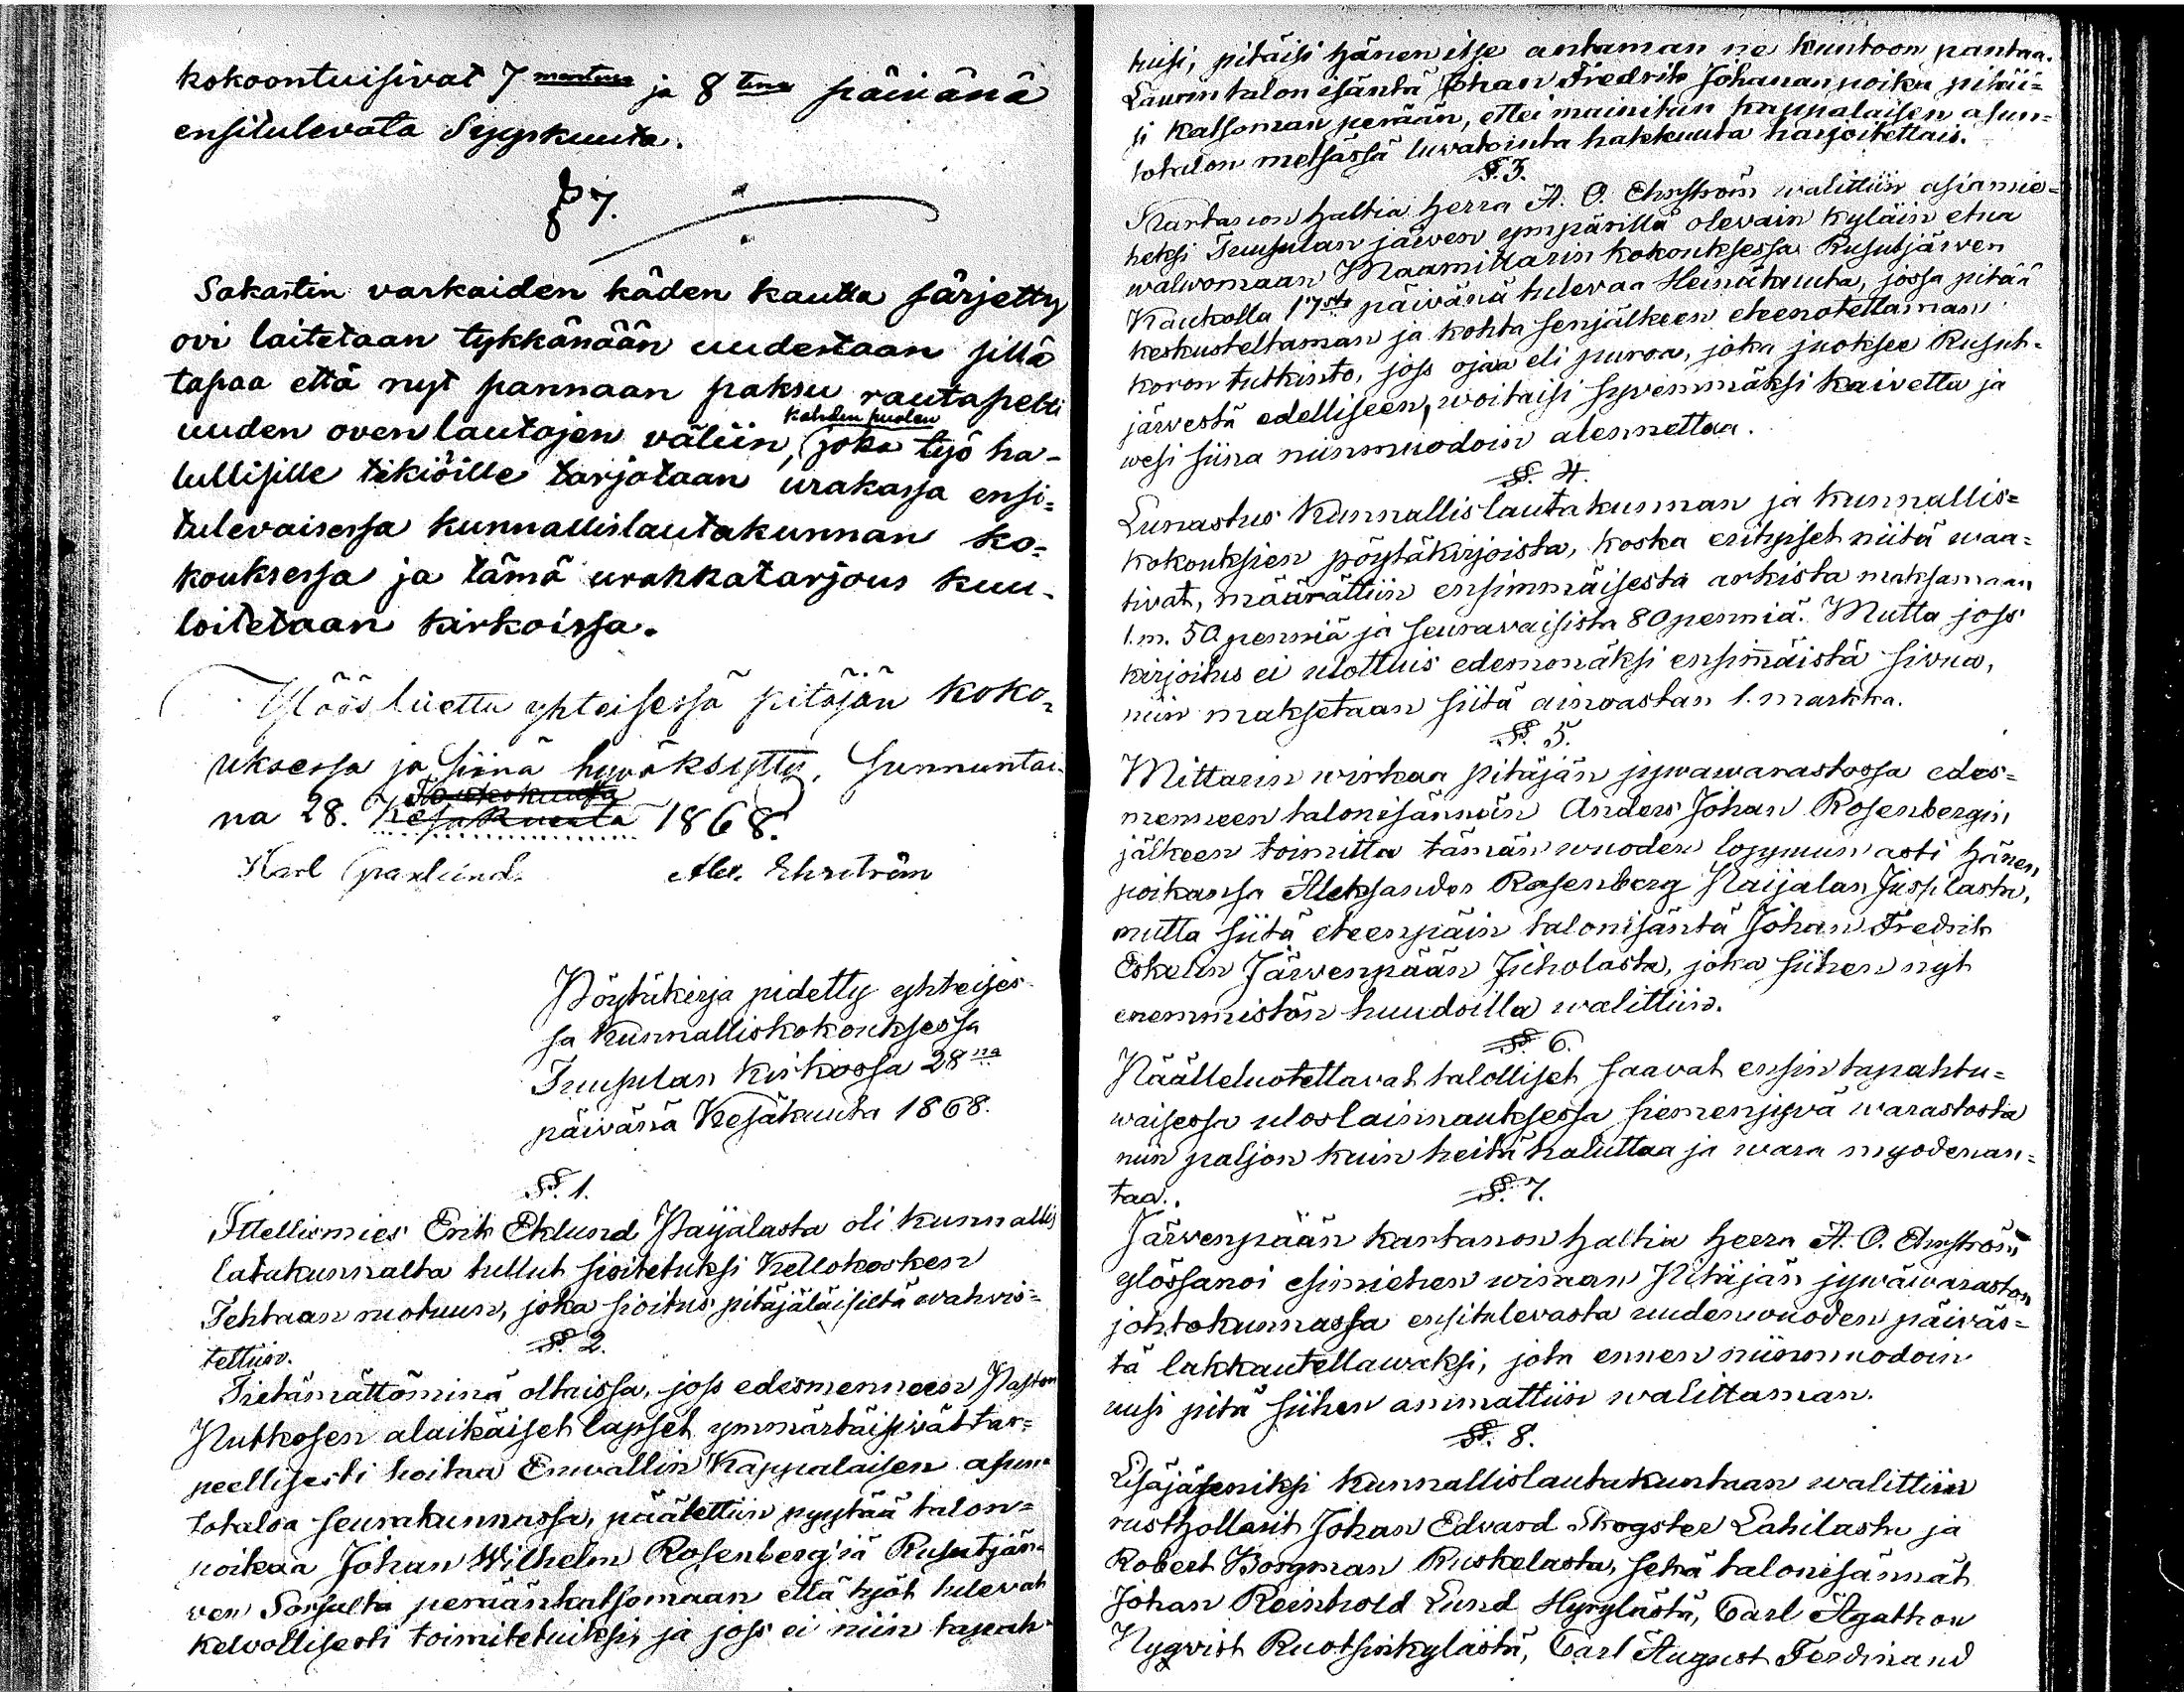 kokoontuisivat 7 mantena ja 8 tena päivänä
ensitulevata Syyskuuta.
§ 7.
Sakastin varkaiden käden kautta särjetty
ovi laitetaan tykkänään uudestaan sillä
tapaa että nyt pannaan paksu rautapelti
kahden puolen
uuden oven lautojen väliin, joka työ ha-
lullisille tekiöille tarjotaan urakassa ensi-
tulevaisessa kunnallislautakunnan ko-
kouksessa ja tämä urakkatarjous kuu-
loitetaan kirkoissa.
Ylösluettu yhteisessä pitäjän koko-
uksessa ja siinä hyväksytty, Sunnuntai-
Toukokuuta
na 28. Kesäkuuta 1868.
Karl Alex. Ehrström
Pöytäkirja pidetty yhteises-
sa Kunnalliskokouksessa
Tuusulan kirkossa 28na
päivänä Kesäkuuta 1868.
§. 1.
Itellismies Erik Eklund Paijalasta oli kunnallis
latakunnalta tullut sioitetuksi Kellokosken
Tehtaan ruotuun, joka sioitus pitäjäläisiltä wahvis=
tettiin.
§. 2.
Tietämättöminä oltaissa, joss edesmenneen Pastori
Putkosen alaikäiset lapset ymmärtäisivät tar=
peellisesti hoitaa Enwallin Kappalaisen asun=
totaloa seurakunnassa, päätettiin pyytää talon=
poikaa Johan Wilhelm Rosenberg'iä Rusutjär=
ven Sorsalta peräänkatsomaan että työt tulevat
kelvollisesti toimitetuiksi, ja joss ei niin tapah=
tuisi, pitäisi hänen itse antaman ne kuntoon pantaa.
Laurin talon isäntä Johan Fredrik Johananpoika pitäi=
si katsoman perään, ettei mainitun kappalaisen asun=
totalon metsässä luvatointa hakkuuta harjoitettais.
§. 3.
Kartanon haltia herra A. O. Ehrström walittiin asiamie=
heksi Tuusulan järven ympärillä olevain kyläin etua
walwomaan Maamittarin kokouksessa Rusutjärven
Kaukolla 17sta päivänä tulevaa Heinäkuuta, jossa pitää
keskusteltaman ja kohta senjälkeen eteenotettaman
koron tutkinto, joss ojaa eli puroa, joka juoksee Rusut-
järvestä edelliseen, woitaisi syvemmäksi kaivetta ja
wesi siina niinmuodoin alennettaa.
§. 4.
Lunastus Kunnallislautakunnan ja kunnallis=
kokouksien pöytäkirjoista, koska erityiset niitä waa=
tivat, määrättiin ensimmäisestä arkista maksamaan
1.m. 50 penniä ja seuravaisista 80 penniä. Mutta joss
kirjoitus ei ulottuis edemmäksi ensimäistä sivua,
niin maksetaan siitä ainoastan 1. markka.
§. 5.
Mittarin wirkaa pitäjän jywawarastossa edes=
menneen talonisännän Anders Johan Rosenbergin
jälkeen toimitta tämän wuoden loppuun asti hänen
poikansa Aleksander Rosenberg Paijalan Juspilasta,
mutta siitä eteenpäin talonisäntä Johan Fredrik
Eskelin Järwenpään Juholasta, joka siihen nyt
enemmistön huudoilla walittiin.
§. 6.
Päälleluotettavat talolliset saavat ensin tapahtu=
waisessa uloslainauksessa siemenjyvä warastosta
niin paljon kuin heitä haluttaa ja wara myödenan=
taa.
§. 7.
Järvenpään kartanon haltia herra A. O. Ehrström
ylössanoi esimiehen wiraan Pitäjän jywäwaraston
johtokunnassa ensitulevasta uudenvuoden päiväs=
tä lakkautellawaksi, jota ennen niinmuodoin
uusi pitä siihen ammattiin walittaman.
§. 8.
Lisäjäseniksi Kunnallislautakuntaan walittiin
rusthollarit Johan Edvard Skogster Lahilasta ja
Robert Borgman Ruskelasta, sekä talonisännät
Johan Reinhold Lund Hyrylästä, Carl Agathon
Nyqvist Ruotsinkylästä, Carl August Ferdinand